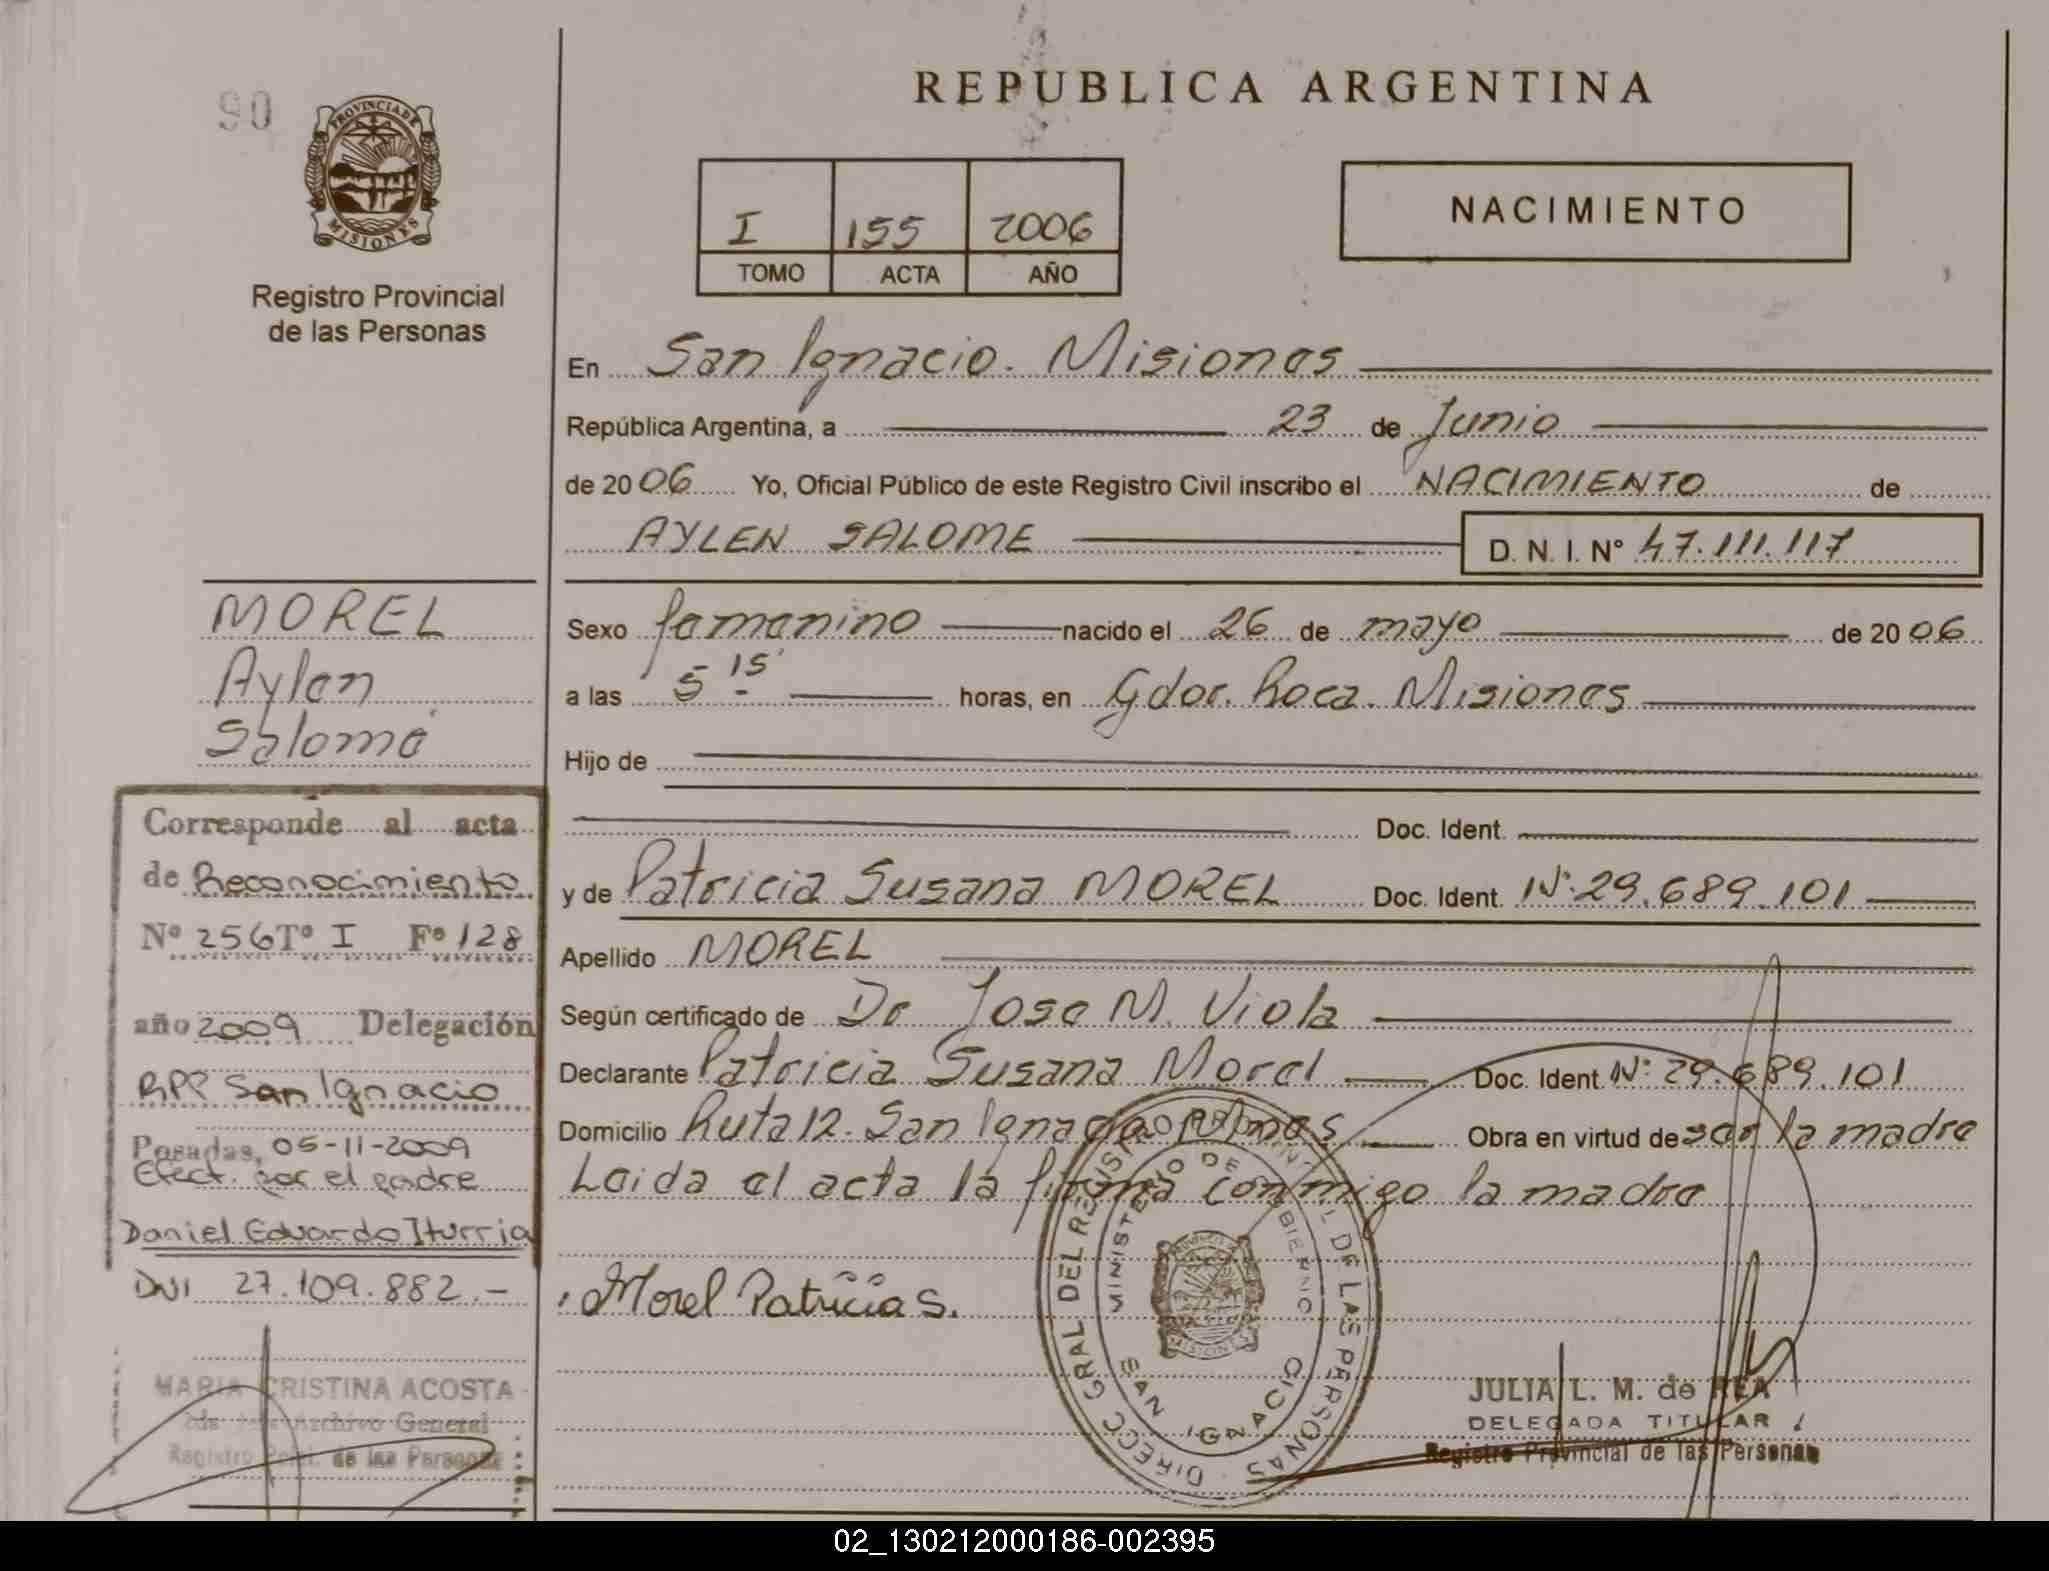 90
PROVINCIA DE
MISIONES
Registro Provincial
de las Personas
REPUBLICA ARGENTINA
I 155 2006
TOMO ACTA AÑO
NACIMIENTO
En San Ignacio. Misiones
República Argentina, a 23 de Junio
de 2006 Yo, Oficial Público de este Registro Civil inscribo el NACIMIENTO de
AYLEN SALOME D. N. I. N° 47.111.117
Sexo femenino nacido el 26 de mayo de 2006
a las 5 15' horas, en Gdor. Roca. Misiones
Hijo de
Doc. Ident.
y de Patricia Susana MOREL Doc. Ident. N° 29.689.101
Apellido MOREL
Según certificado de Dr Jose M. Viola
Declarante Patricia Susana Morel Doc. Ident N° 29.689.101
Domicilio Ruta 12. San Ignacio Mnes Obra en virtud de ser la madre
Leida el acta la firma conmigo la madre
Morel Patricia S.
DIRECC GRAL DEL REGISTRO PROVINCIAL DE LAS PERSONAS
MINISTERIO DE GOBIERNO
MISIONES
SAN IGNACIO
JULIA L. M. de REA
DELEGADA TITULAR
Registro Provincial de las Personas
MOREL
Aylen
Salomé
Corresponde al acta
de Reconocimiento
N° 256 T° I F° 128
año 2009 Delegación
RPP San Ignacio
Posadas, 05-11-2009
Efect. por el padre
Daniel Eduardo Iturria
DNI 27.109.882.-
MARIA CRISTINA ACOSTA
Archivo General
Registro de las Personas
02_130212000186-002395